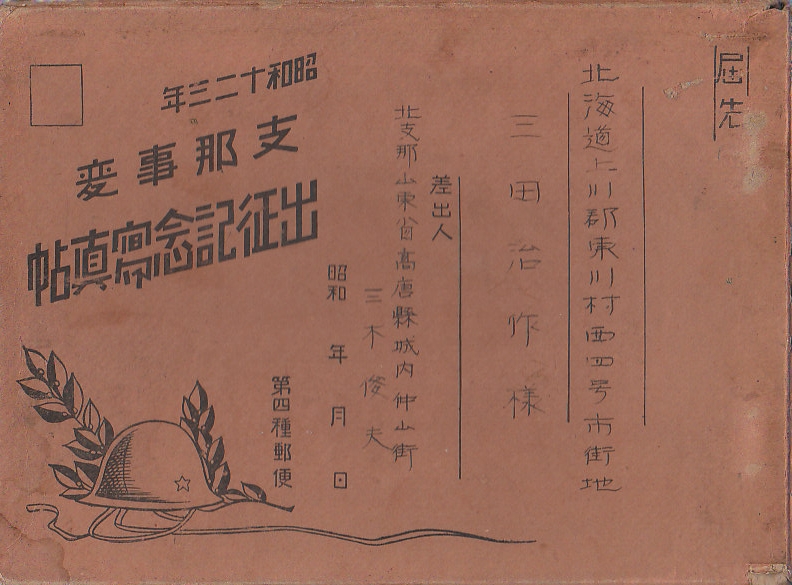 届先
北海道上川郡東川村西四号市街地
三田治作様
差出人
北支那山東省高唐縣城内仲山街
三木俊夫
昭和 年 月 日
第四種郵便
昭和十二三年
支那事変
出征記念寫真帖